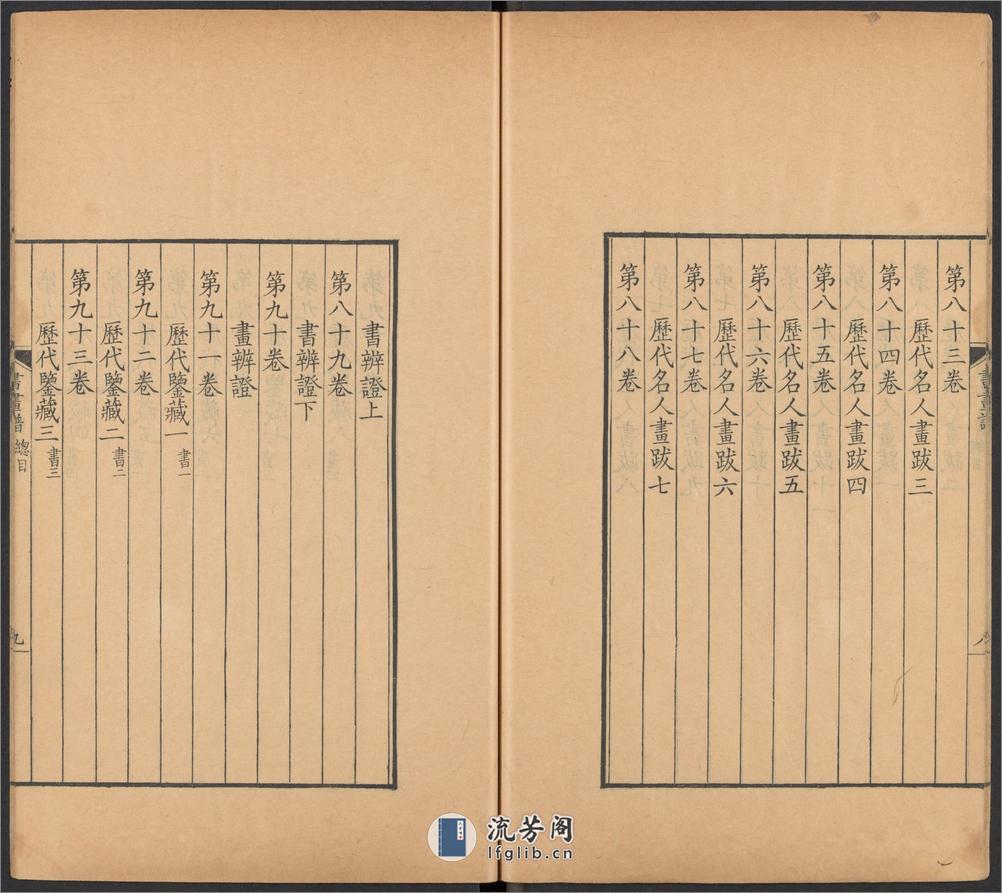 第八十三卷
歷代名人畫跋三
第八十四卷
歷代名人畫跋四
第八十五卷
歷代名人畫跋五
第八十六卷
歷代名人畫跋六
第八十七卷
歷代名人畫跋七
第八十八卷
書辨證上
第八十九卷
書辨證下
第九十卷
畫辨證
第九十一卷
歷代鑒藏一 書一
第九十二卷
歷代鑒藏二 書二
第九十三卷
歷代鑒藏三 書三
書畫譜 總目
九
流芳阁
lfglib.cn